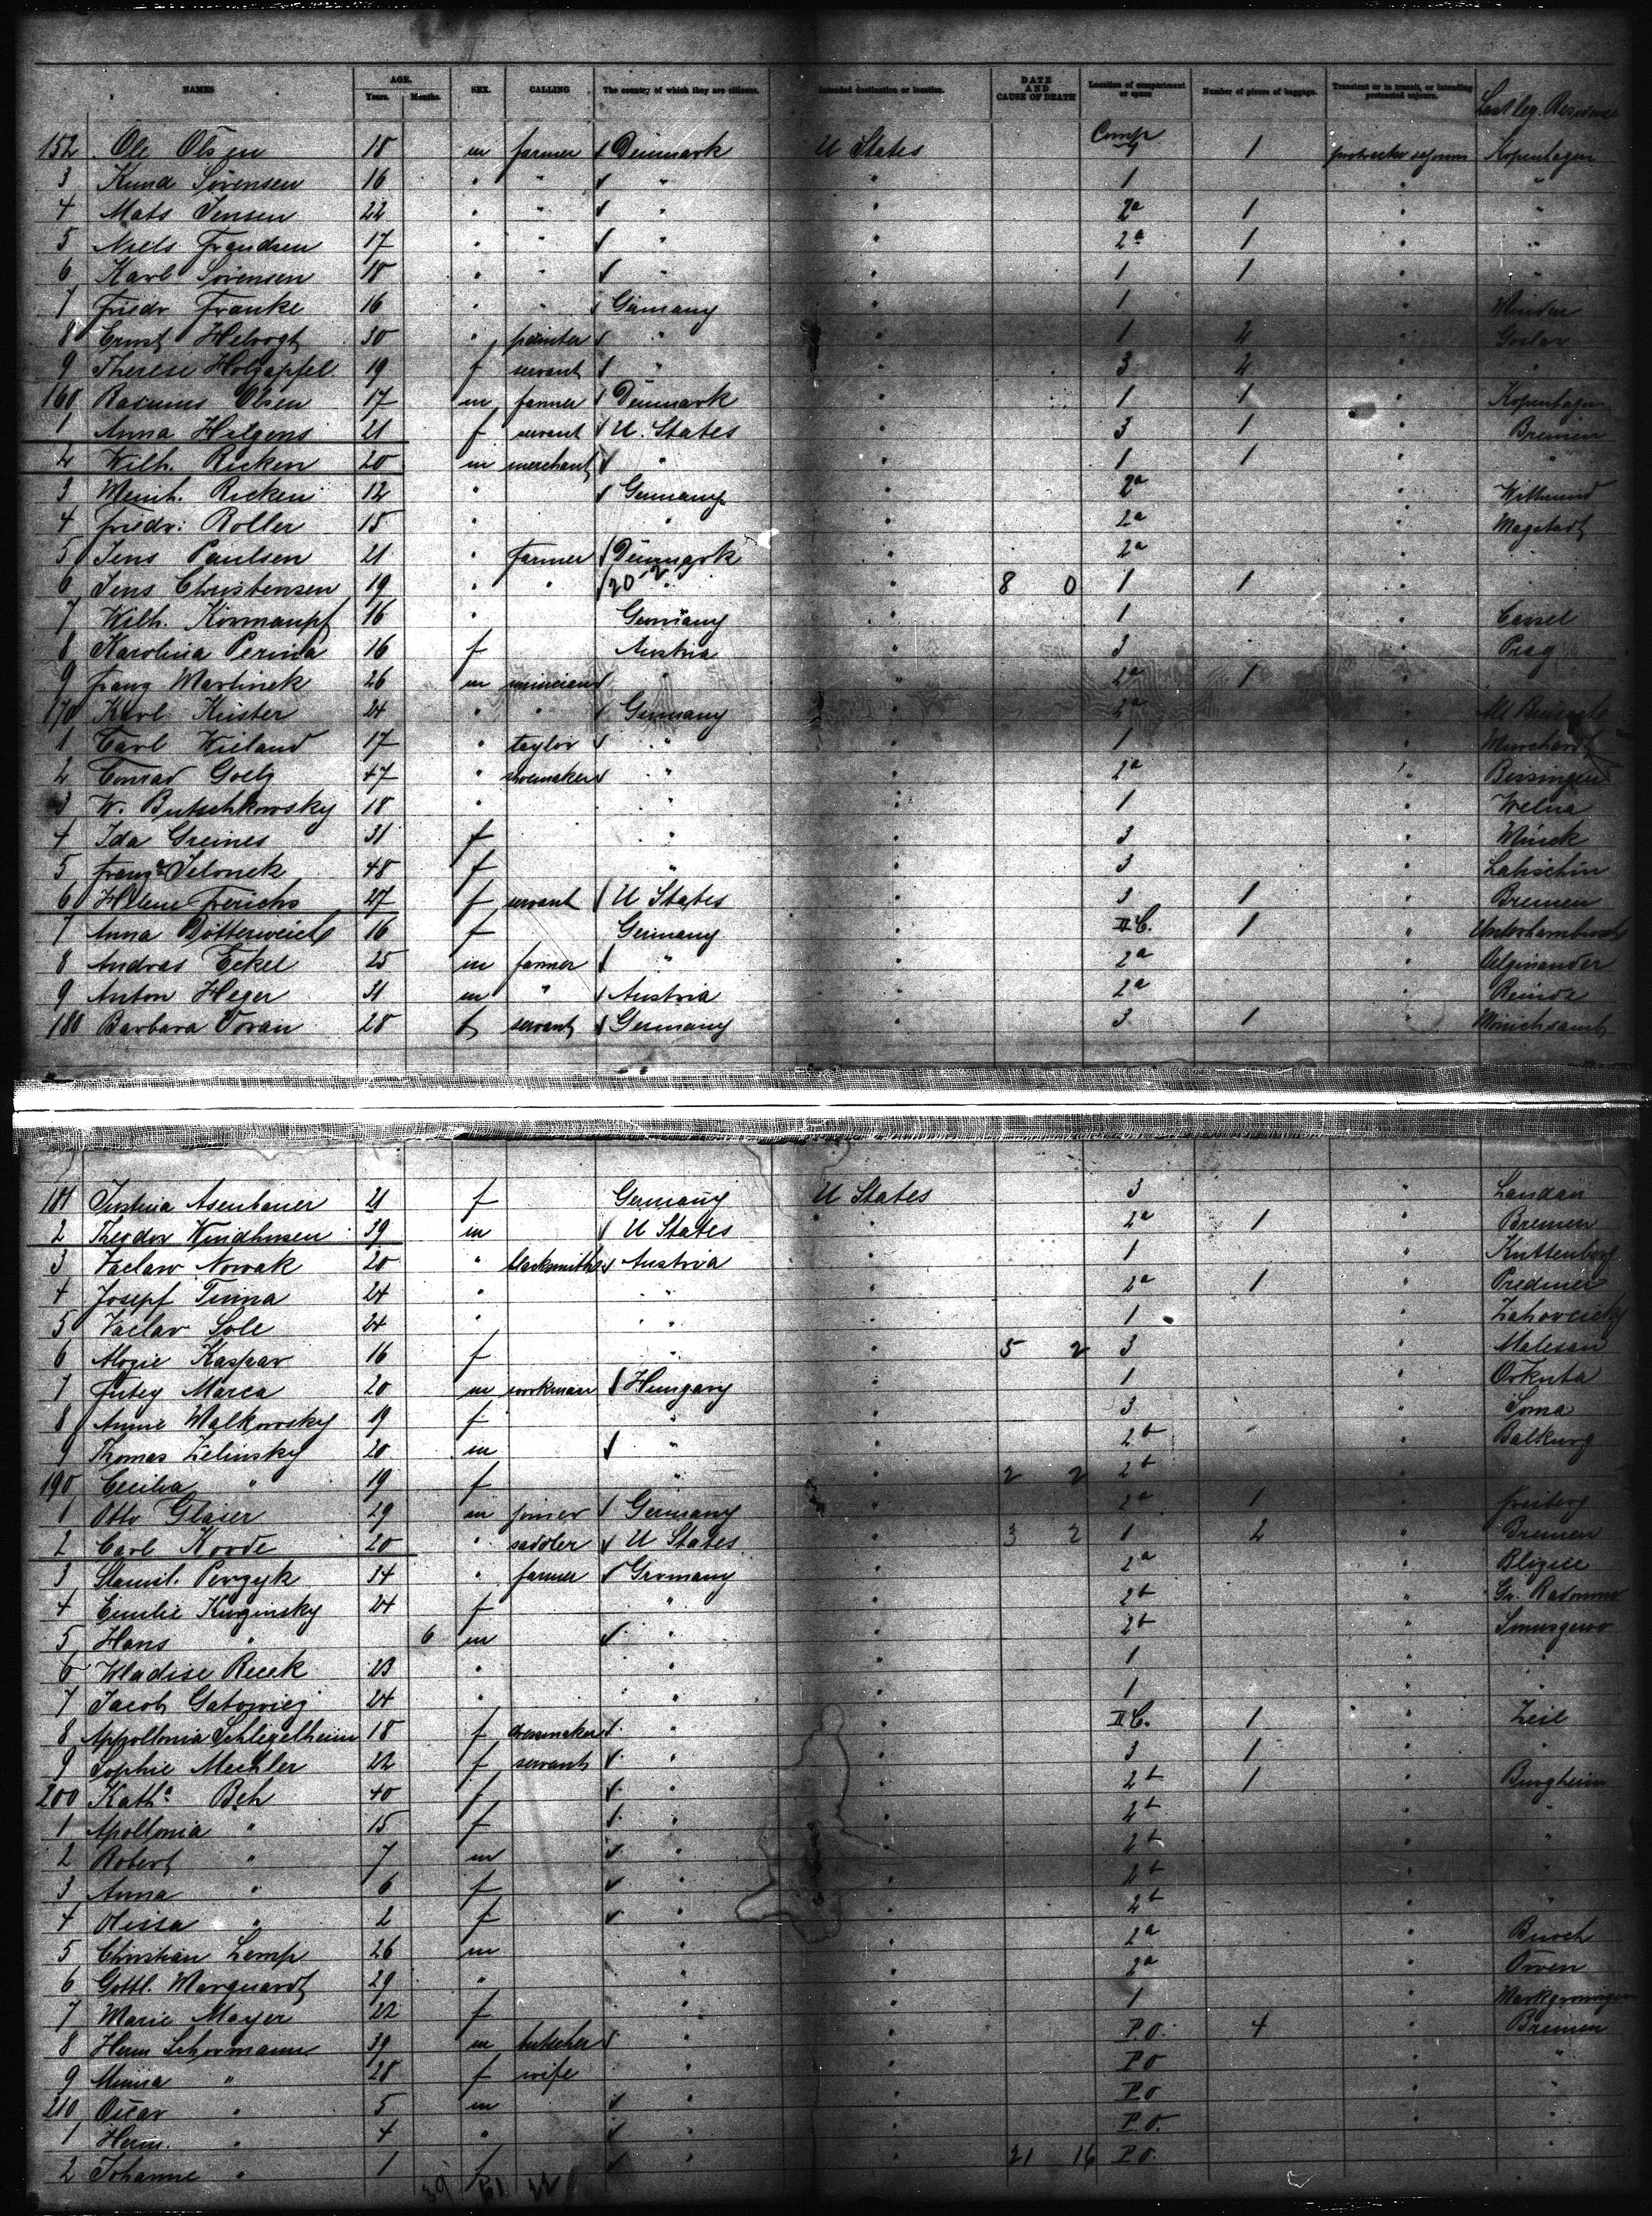 NAMES AGE. Years. Months. SEX. CALLING The country of which they are citizens. Intended destination or location. DATE AND CAUSE OF DEATH Location of compartment or space Number of pieces of baggage. Transient or in transit, or intending protracted sojourn. Last leg. Residence
152 Ole Olsen 18 m farmer √ Denmark U States Comp 1 1 Kopenhagen
3 Knud Sörensen 16 " " √ " " 1 " "
4 Mats Jensen 22 " " √ " " 2a 1 " "
5 Niels Frandsen 17 " " √ " " 2a 1 " "
6 Karl Sörensen 18 " " √ " " 1 1 " "
7 Friedr Franke 16 " " √ Germany " 1 " Minden
8 Ernst 30 " painter √ " " 1 2 " Goslar
9 Therese Holzapfel 19 f servant √ " " 3 2 " "
160 Rasmus Olsen 17 m farmer √ Denmark " 1 1 " Kopenhagen
1 Anna Hilgens 21 f servant √ U. States " 3 1 " Bremen
2 Wilh. Ricken 20 m merchant √ " " 1 1 " "
3 Meinh. Ricken 12 " √ Germany " 2a " Wittmund
4 Friedr. Roller 15 " " " 2a " Magstadt
5 Jens Paulsen 21 " farmer √ Denmark " 2a " "
6 Jens Christensen 19 " " √ 20-2 " " 8 0 1 1 " "
7 Wilh. 16 " Germany " 1 " Cassel
8 Karolina Perina 16 f Austria " 3 " Prag
9 Franz Martinek 26 m musician √ " " 2a 1 " "
170 Karl Küster 24 " " √ Germany " 2a "
1 Carl Wieland 17 " taylor √ " " 1 "
2 Conrad Goelz 47 " shoemaker √ " " 2a " Bissingen
3 W. Butschkowsky 18 " " " 1 " Welna
4 Ida Greines 31 f " " 3 "
5 Franza Jelonek 48 f " " 3 " Labischin
6 Helene Frerichs 27 f servant √ U States " 3 1 " Bremen
7 Anna 16 f Germany " II C. 1 "
8 Andras Eckel 25 m farmer √ " " 2a "
9 Anton Heger 31 m " √ Austria " 2a "
180 Barbara Voran 28 f servant √ Germany " 3 1 "
181 Justina Asenbauer 21 f Germany U States 3 " Landau
2 Theodor Windhusen 39 m √ U States " 2a 1 " Bremen
3 Vaclaw Nowak 20 " blacksmith √ Austria " 1 " Kuttenberg
4 Josepf Tuma 24 " " " 2a 1 "
5 Vaclav Sole 24 " " " 1 "
6 Alozie Kaspar 16 f " " 5 2 3 " Malesau
7 Marca 20 m workman √ Hungary " 1 " Orkuta
8 Annie Walkowsky 19 f " " 3 "
9 Thomas Zelinsky 20 m √ " " 2b "
190 Cecilia " 19 f " " 2 2 2b "
1 Otto Glaser 29 m joiner √ Germany " 2a 1 " Freiberg
2 Carl Korde 20 " saddler √ U States " 3 2 1 2 " Bremen
3 Stanisl. Perzyk 34 " farmer √ Germany " 2a "
4 Emilie Kuzinsky 24 f " " 2b "
5 Hans " 6 m √ " " 2b "
6 Wladise Recek 23 " " " 1 " "
7 Jacob Gatowiez 24 " " " 1 " "
8 Appollonia Schlegelheim 18 f dressmaker √ " " II C. 1 " Zeil
9 Sophie Mechler 22 f servant √ " " 3 1 " "
200 Katha Beh 40 f √ " " 2b 1 " Burgheim
1 Apollonia " 15 f √ " " 2b " "
2 Robert " 7 m √ " " 2b " "
3 Anna " 6 f √ " " 2b " "
4 " 2 f √ " " 2b " "
5 Christian Lemp 26 m " " 2a " Buoch
6 Gottl. Marquardt 29 " " " 2a " Owen
7 Marie Mayer 22 f " " 1 " Markgroningen
8 Herm Schormann 39 m butscher √ " " P.O. 4 " Bremen
9 Minna " 28 f wife " " P.O " "
210 Oscar " 5 m √ " " P.O " "
1 Herm. " 4 " √ " " P.O. " "
2 Johanne " 1 f √ " " 21 16 P.O. " "